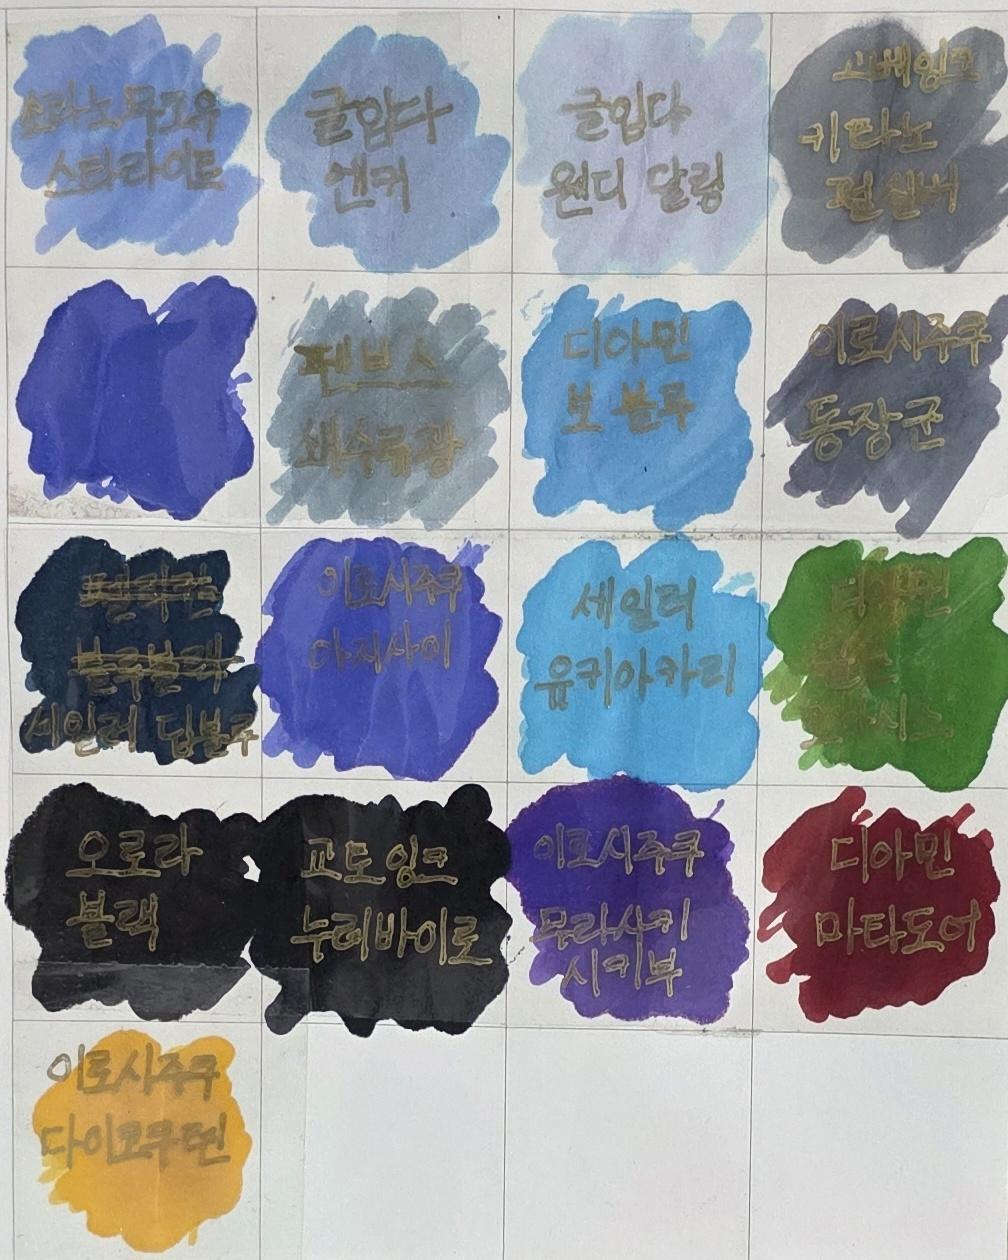 스타라이트
글입다
앤커
글입다
웬디 달링
고베잉크
키타노
펄 실버
펜브스
디아민
보 블루
이로시주쿠
동장군
펠리칸
블루블랙
세일러 딥블루
이로시주쿠
아지사이
세일러
유키아카리
디아민
오아시스
오로라
블랙
교토잉크
누레바이로
이로시주쿠
무라사키
시키부
디아민
마타도어
이로시주쿠